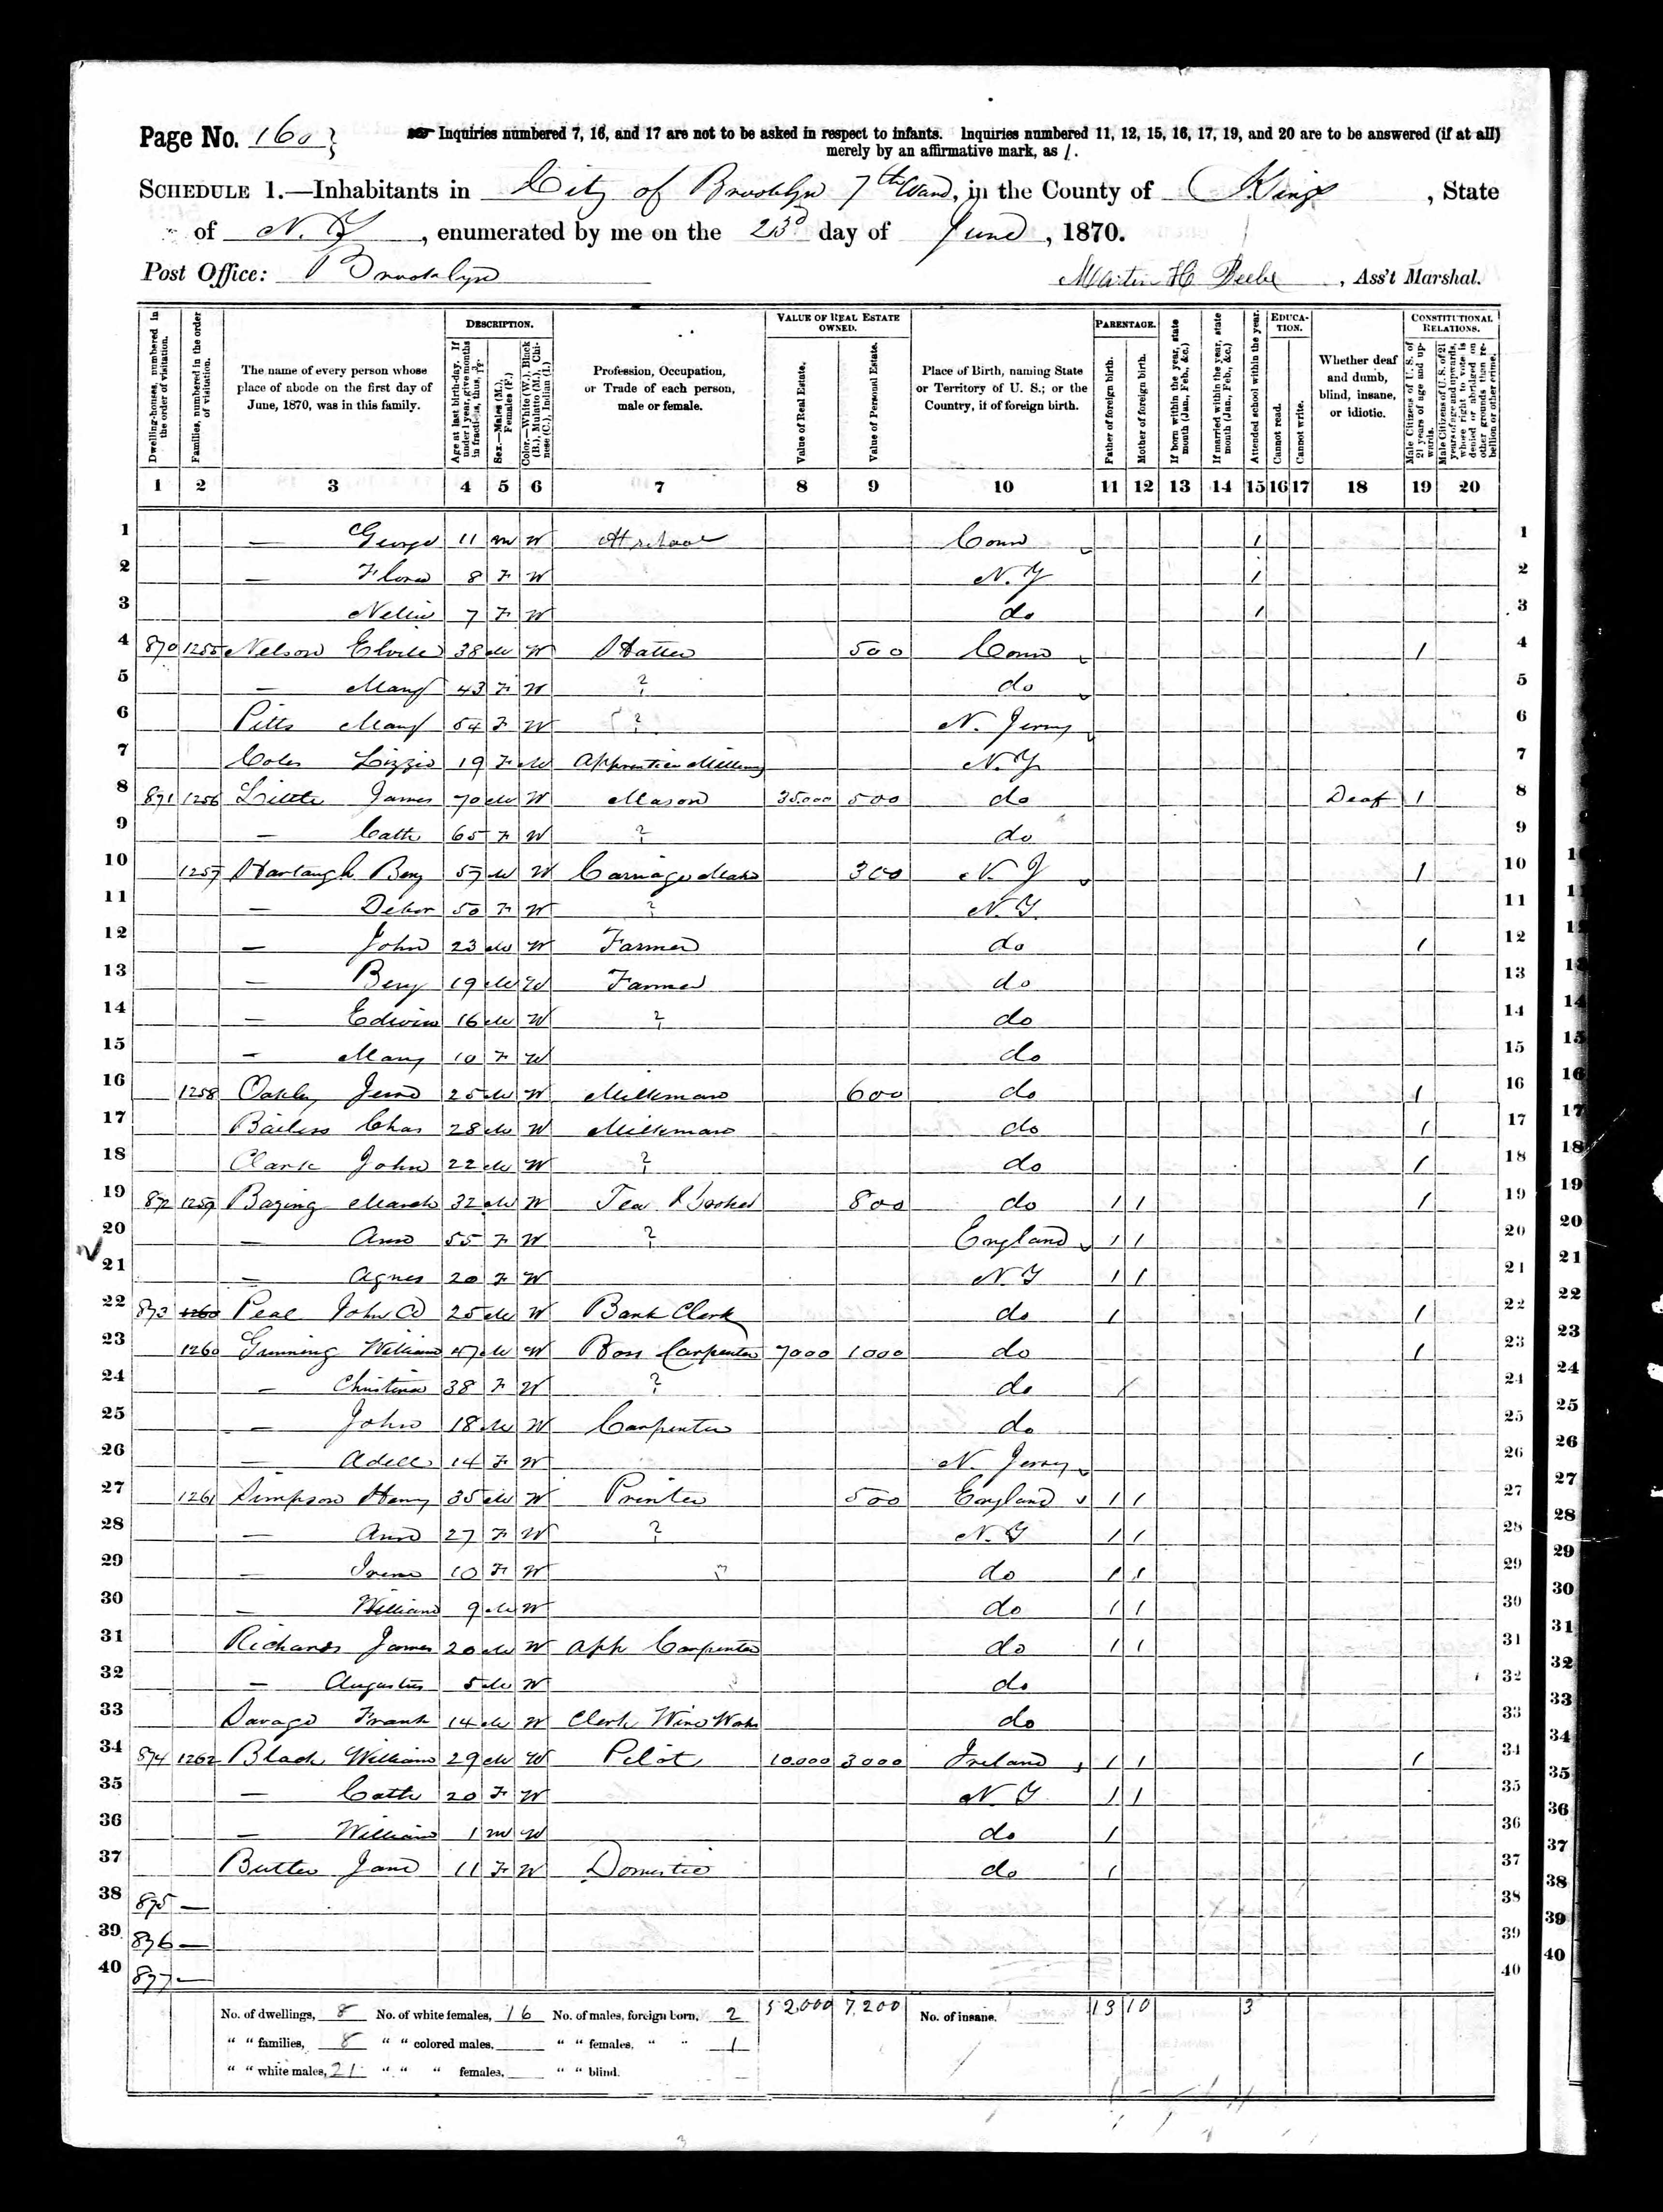 Page No. 160
Inquiries numbered 7, 16, and 17 are not to be asked in respect to infants. Inquiries numbered 11, 12, 15, 16, 17, 19, and 20 are to be answered (if at all)
merely by an affirmative mark, as /.
SCHEDULE 1.—Inhabitants in City of Brooklyn 7th Ward, in the County of Kings, State
of N.Y, enumerated by me on the 23d day of June, 1870.
Post Office: Brooklyn Martin H Beebe, Ass't Marshal.
Dwelling-houses, numbered in the order of visitation.
Families, numbered in the order of visitation.
The name of every person whose place of abode on the first day of June, 1870, was in this family.
DESCRIPTION.
Age at last birth-day. If under 1 year, give months in fractions, thus,
Sex.—Males (M.), Females (F.)
Color.—White (W.), Black (B.), Mulatto (M.), Chinese (C.), Indian (I.)
Profession, Occupation, or Trade of each person, male or female.
VALUE OF REAL ESTATE OWNED.
Value of Real Estate.
Value of Personal Estate.
Place of Birth, naming State or Territory of U. S.; or the Country, if of foreign birth.
PARENTAGE.
Father of foreign birth.
Mother of foreign birth.
If born within the year, state month (Jan., Feb., &c.)
If married within the year, state month (Jan., Feb., &c.)
Attended school within the year.
EDUCATION.
Cannot read.
Cannot write.
Whether deaf and dumb, blind, insane, or idiotic.
CONSTITUTIONAL RELATIONS.
Male Citizens of U. S. of 21 years of age and upwards.
Male Citizens of U. S. of 21 years of age and upwards, whose right to vote is denied or abridged on other grounds than rebellion or other crime.
1 2 3 4 5 6 7 8 9 10 11 12 13 14 15 16 17 18 19 20
1 — George 11 m W At school Conn 1 1
2 — Flora 8 F W N.Y 1 2
3 — Nellie 7 F W do 1 3
4 870 1255 Nelson 38 M W Hatter 500 Conn 1 4
5 — Mary 43 F W ? do 5
6 Pitts Mary 54 F W ? N. Jersey 6
7 Coles Lizzie 19 F W Apprentice N.Y. 7
8 871 1256 Little James 70 M W Mason 35.000 500 do Deaf 1 8
9 — Cath 65 F W ? do 9
10 1257 Benj 57 M W Carriage 300 N. J 1 10
11 — 50 F W ? N.Y. 11
12 — John 23 M W Farmer do 1 12
13 — Benj 19 M W Farmer do 13
14 — Edwin 16 M W ? do 14
15 — Mary 10 F W do 15
16 1258 Oakley 25 M W Milkman 600 do 1 16
17 Chas 28 M W Milkman do 1 17
18 Clark John 22 M W ? do 1 18
19 872 1259 32 M W Tea 800 do 1 1 1 19
20 — Ann 55 F W ? England 1 1 20
21 — Agnes 20 F W N Y 1 1 21
22 873 1260 Peal John 25 M W Bank Clerk do 1 1 22
23 1260 Gunning William 47 M W Boss Carpenter 7000 1000 do 1 23
24 — Christina 38 F W ? do / 24
25 — John 18 M W Carpenter do 25
26 — Adell 14 F W N. Jersey 26
27 1261 Simpson Henry 35 M W Printer 500 England 1 1 27
28 — Ann 27 F W ? N.Y 1 1 28
29 — Irene 10 F W do 1 1 29
30 — William 9 M W do 1 1 30
31 Richards James 20 M W App Carpenter do 1 1 31
32 — Augustus 5 M W do 32
33 Savage Frank 14 M W Clerk do 33
34 874 1262 Black William 29 M W Pilot 10.000 3000 Ireland 1 1 1 34
35 — Cath 20 F W N Y 1 1 35
36 — William 1 m W do 1 36
37 Butler Jane 11 F W Domestic do 1 37
38 875 — 38
39 876 — 39
40 877 — 40
No. of dwellings, 8 No. of white females, 16 No. of males, foreign born, 2 52,000 7,200 No. of insane, 13 10 3
" " families, 8 " " colored males, " " females, " " 1
" " white males, 21 " " " females, " " blind.